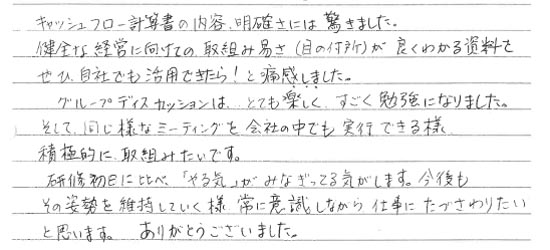 キャッシュフロー計算書の内容、明確さには驚きました。
健全な経営に向けての取組み易さ(目の付所)が良くわかる資料を
ぜひ自社でも活用できたら!と痛感しました。
グループディスカッションは、とても楽しく、すごく勉強になりました。
そして、同じ様なミーティングを会社の中でも実行できる様、
積極的に取組みたいです。
研修初日に比べ、「やる気」がみなぎってる気がします。今後も
その姿勢を維持していく様、常に意識しながら仕事にたずさわりたい
と思います。 ありがとうございました。